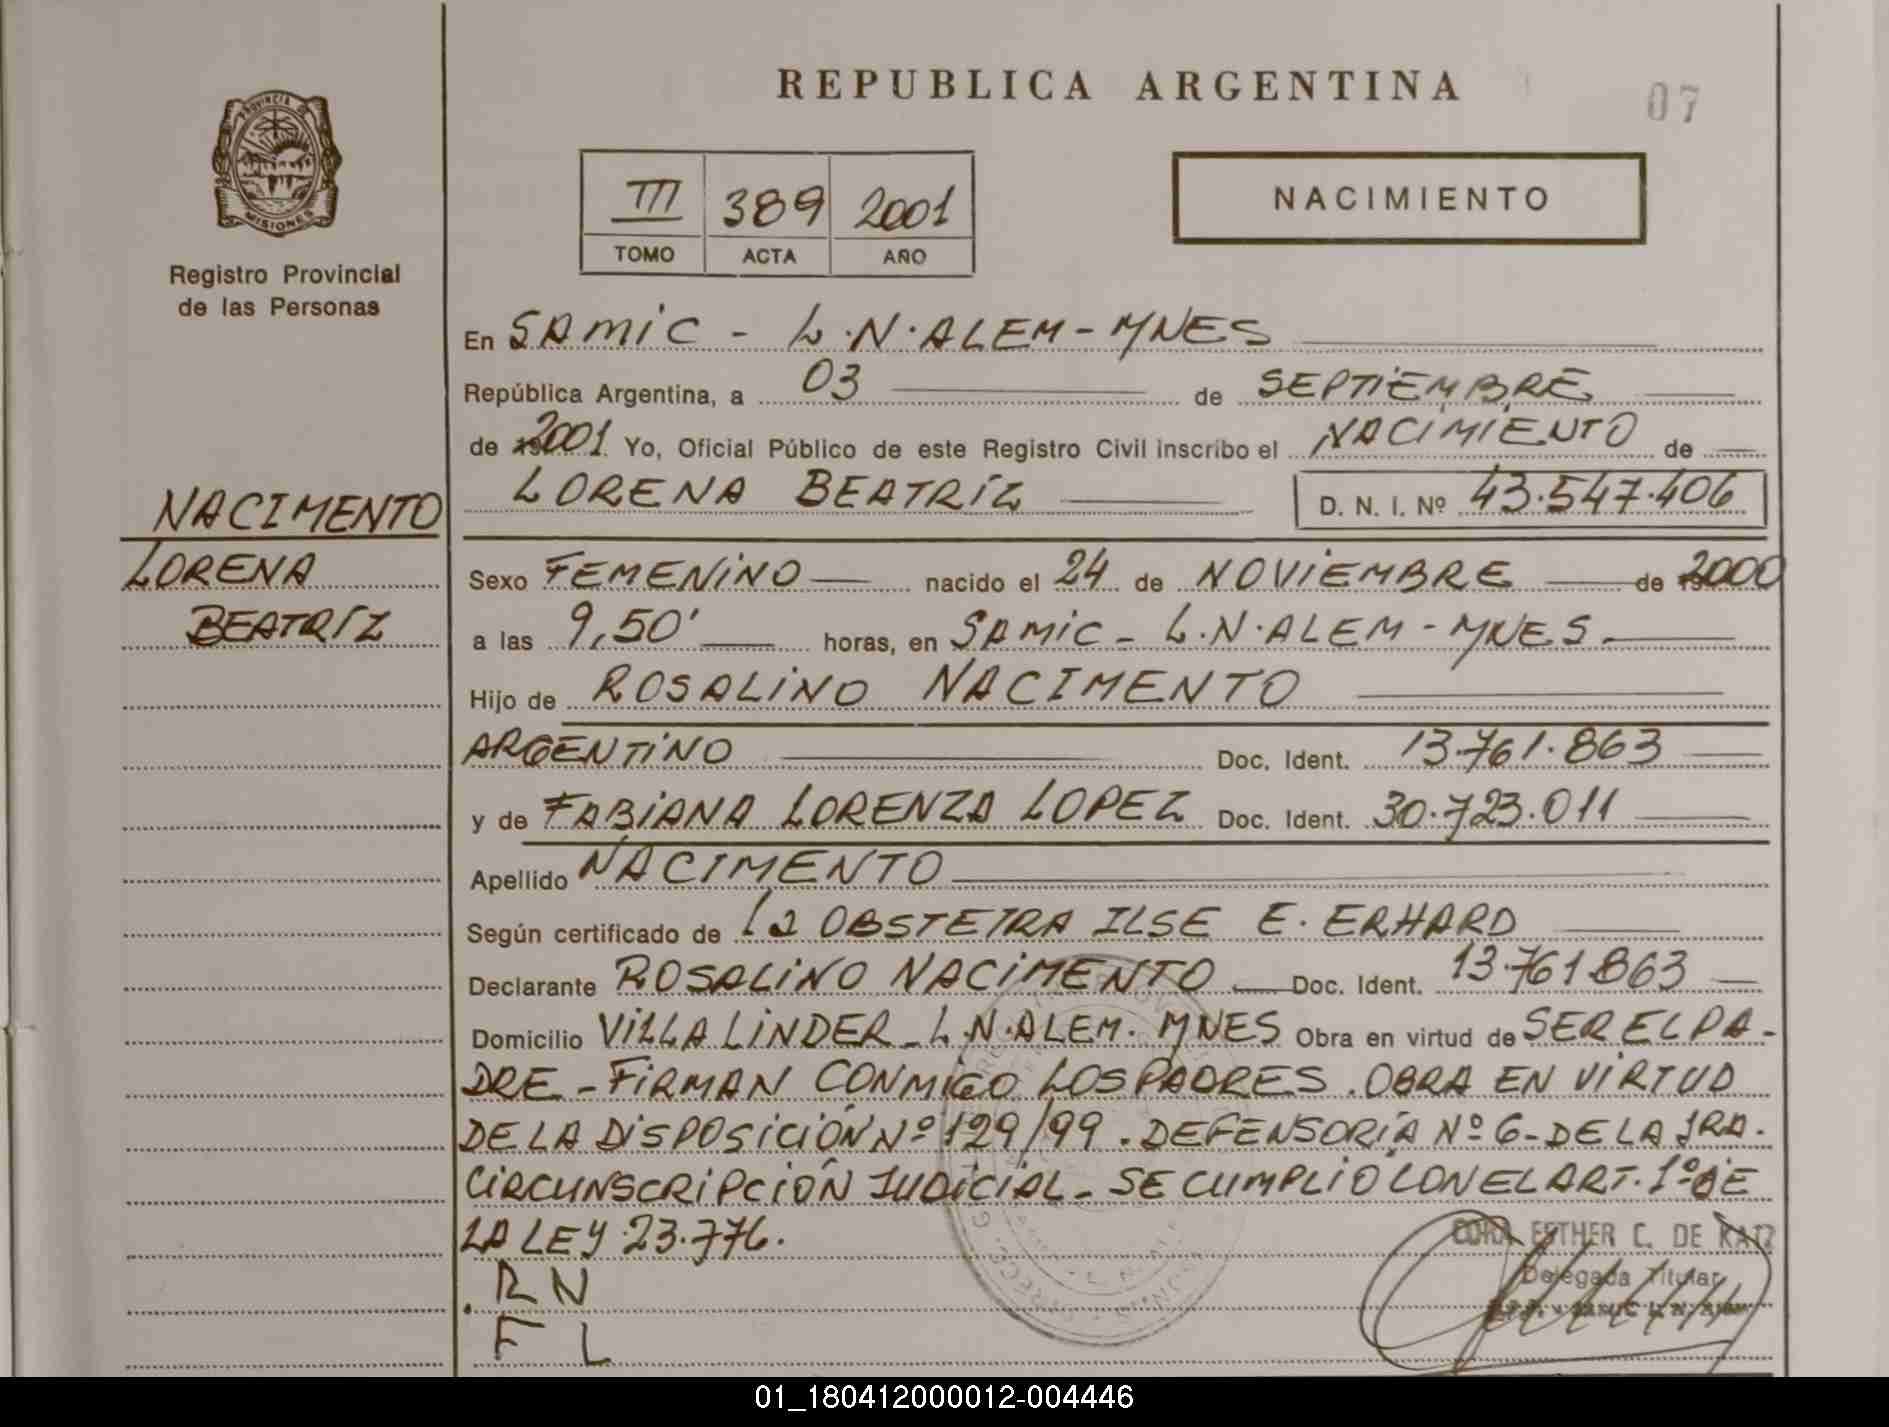 REPUBLICA ARGENTINA
07
PROVINCIA DE
MISIONES
Registro Provincial
de las Personas
III 389 2001
TOMO ACTA AÑO
NACIMIENTO
En SAMIC - L.N.ALEM-MNES
República Argentina, a 03 de SEPTIEMBRE
de 2001 Yo, Oficial Público de este Registro Civil inscribo el NACIMIENTO de
LORENA BEATRÍZ D. N. I. Nº 43.547.406
NACIMENTO
LORENA
BEATRÍZ
Sexo FEMENINO nacido el 24 de NOVIEMBRE de 2000
a las 9,50' horas, en SAMIC - L.N.ALEM - MNES.
Hijo de ROSALINO NACIMENTO
ARGENTINO Doc. Ident. 13.761.863
y de FABIANA LORENZA LOPEZ Doc. Ident. 30.723.011
Apellido NACIMENTO
Según certificado de La OBSTETRA ILSE E. ERHARD
Declarante ROSALINO NACIMENTO Doc. Ident. 13.761.863
Domicilio VILLA LINDER - L.N.ALEM. MNES Obra en virtud de SER EL PA-
DRE - FIRMAN CONMIGO LOS PADRES. OBRA EN VIRTUD
DE LA DISPOSICIÓN Nº 129/99. DEFENSORÍA Nº 6 - DE LA 1RA.
CIRCUNSCRIPCIÓN JUDICIAL - SE CUMPLIÓ CON EL ART. 1º DE
LA LEY 23.776.
R N
F L
CORA ESTHER C. DE KATZ
Delegada Titular
01_180412000012-004446